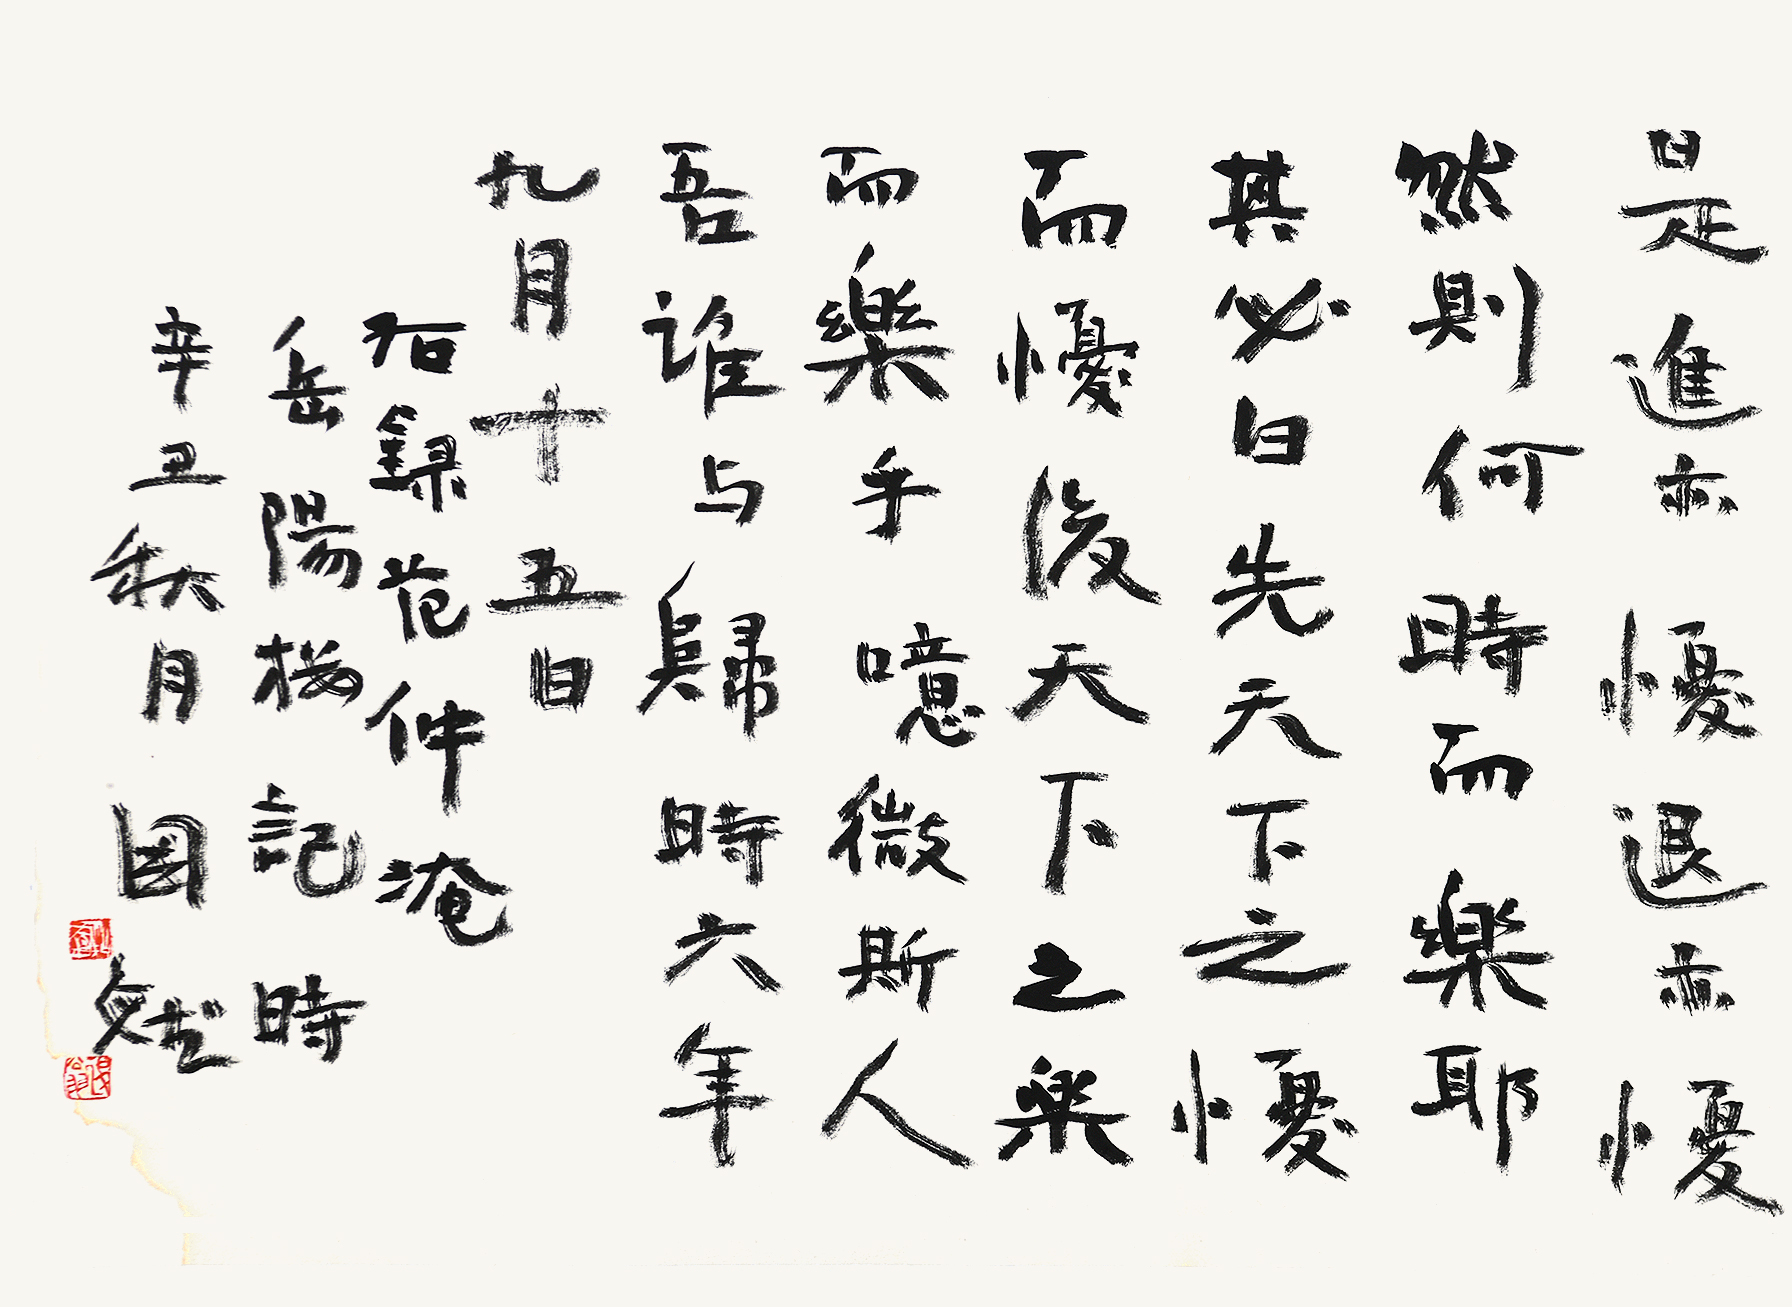 是進亦懮退亦懮
然則何時而樂耶
其必曰先天下之懮
而懮後天下之樂
而樂乎噫微斯人
吾誰与歸時六年
九月十五日
右録范仲淹
岳陽楼記時
辛丑秋月国